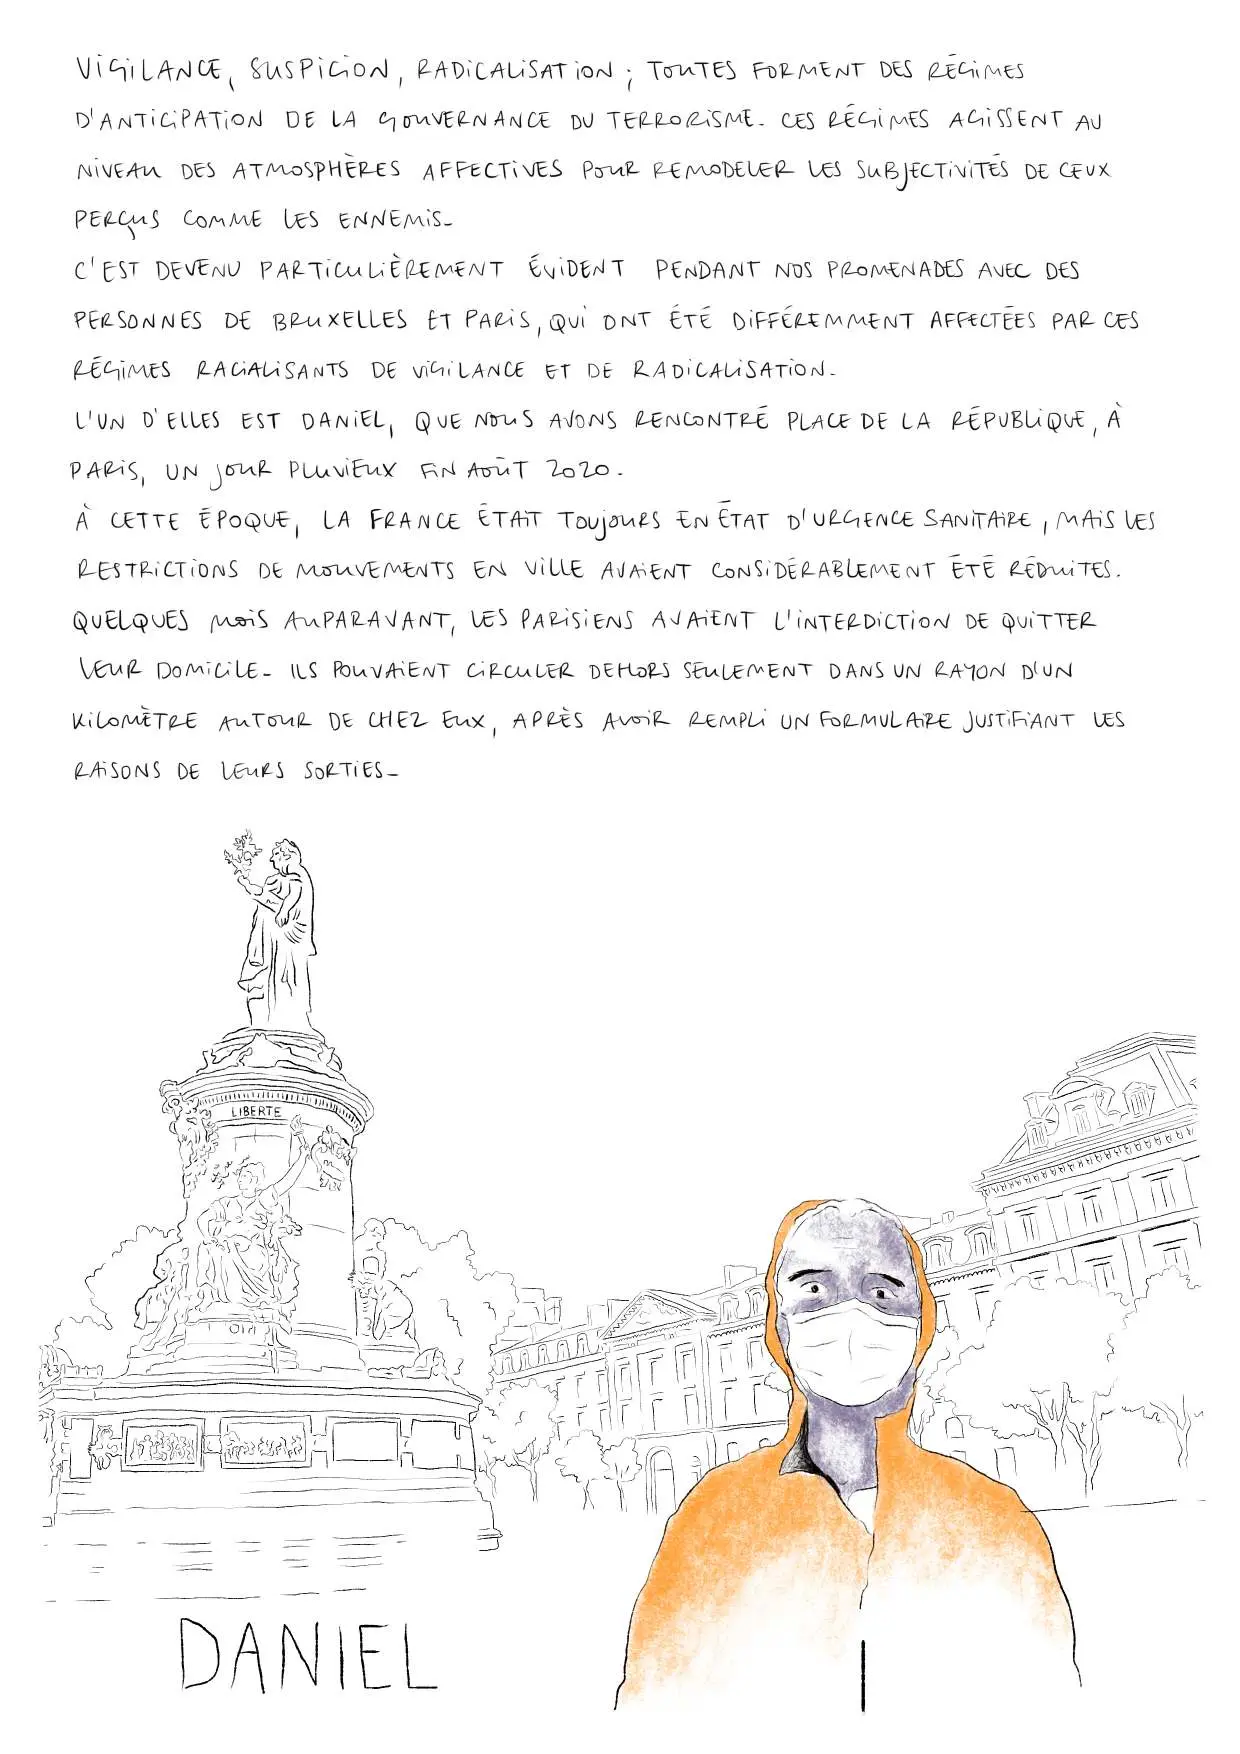 VIGILANCE, SUSPICION, RADICALISATION ; TOUTES FORMENT DES RÉGIMES
D'ANTICIPATION DE LA GOUVERNANCE DU TERRORISME. CES RÉGIMES AGISSENT AU
NIVEAU DES ATMOSPHÈRES AFFECTIVES POUR REMODELER LES SUBJECTIVITÉS DE CEUX
PERÇUS COMME LES ENNEMIS.
C'EST DEVENU PARTICULIÈREMENT ÉVIDENT PENDANT NOS PROMENADES AVEC DES
PERSONNES DE BRUXELLES ET PARIS, QUI ONT ÉTÉ DIFFÉREMMENT AFFECTÉES PAR CES
RÉGIMES RACIALISANTS DE VIGILANCE ET DE RADICALISATION.
L'UN D'ELLES EST DANIEL, QUE NOUS AVONS RENCONTRÉ PLACE DE LA RÉPUBLIQUE, À
PARIS, UN JOUR PLUVIEUX FIN AOÛT 2020.
À CETTE ÉPOQUE, LA FRANCE ÉTAIT TOUJOURS EN ÉTAT D'URGENCE SANITAIRE, MAIS LES
RESTRICTIONS DE MOUVEMENTS EN VILLE AVAIENT CONSIDÉRABLEMENT ÉTÉ RÉDUITES.
QUELQUES MOIS AUPARAVANT, LES PARISIENS AVAIENT L'INTERDICTION DE QUITTER
LEUR DOMICILE. ILS POUVAIENT CIRCULER DEHORS SEULEMENT DANS UN RAYON D'UN
KILOMÈTRE AUTOUR DE CHEZ EUX, APRÈS AVOIR REMPLI UN FORMULAIRE JUSTIFIANT LES
RAISONS DE LEURS SORTIES.
LIBERTE
DANIEL